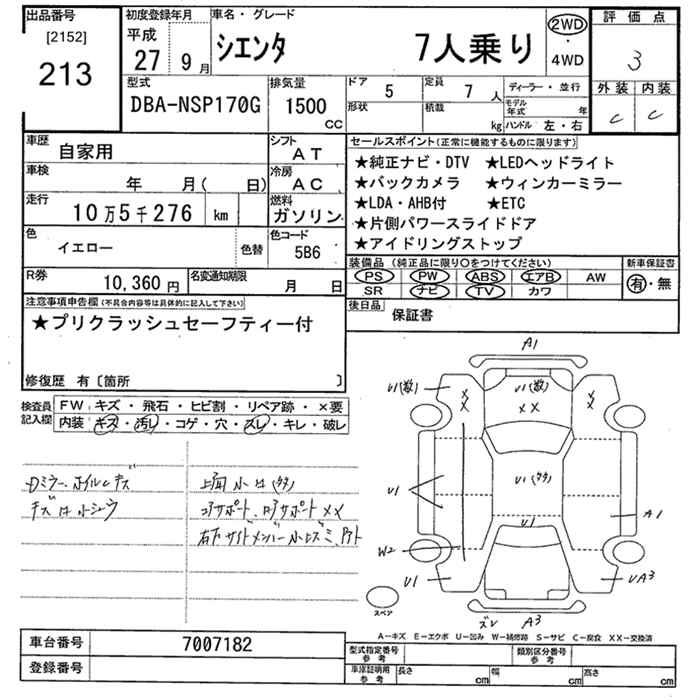 出品番号
[2152]
213
初度登録年月
平成
27 9 月
車名・グレード
シエンタ 7人乗り
2WD
・
4WD
評価点
3
外装 内装
C C
型式
DBA-NSP170G
排気量
1500
CC
ドア 5
定員 7 人
形状
積載 kg
ディーラー・並行
モデル年式 年
ハンドル 左・右
車歴
自家用
シフト
AT
車検
年 月( 日)
冷房
AC
走行
10万5千276 km
燃料
ガソリン
色
イエロー
色替
色コード
5B6
R券
10,360 円
名変通知期限
月 日
セールスポイント(正常に機能するものに限ります)
★純正ナビ・DTV ★LEDヘッドライト
★バックカメラ ★ウィンカーミラー
★LDA・AHB付 ★ETC
★片側パワースライドドア
★アイドリングストップ
装備品 (純正品に限り○をつけてください)
PS PW ABS エアB AW
SR ナビ TV カワ
新車保証書
有・無
後日品
保証書
注意事項申告欄(不具合内容等は具体的に記入して下さい)
★プリクラッシュセーフティー付
修復歴 有〔箇所 〕
検査員記入欄
FW キズ・飛石・ヒビ割・リペア跡・×要
内装 キズ・汚レ・コゲ・穴・スレ・キレ・破レ
Dミラー、ホイルCキズ
キズ凹小シュウ
コアサポート
右下サイドメンバー
A1
U1(数)
U1(数)
××
××
××
U1
U1
U1
A1
W2
U1
UA3
ズレ A3
スペア
A-キズ E-エクボ U-凹み W-補修跡 S-サビ C-腐食 XX-交換済
車台番号 7007182
登録番号
型式指定番号
参考
類別区分番号
参考
車庫証明用
参考
長さ cm
幅 cm
高さ cm